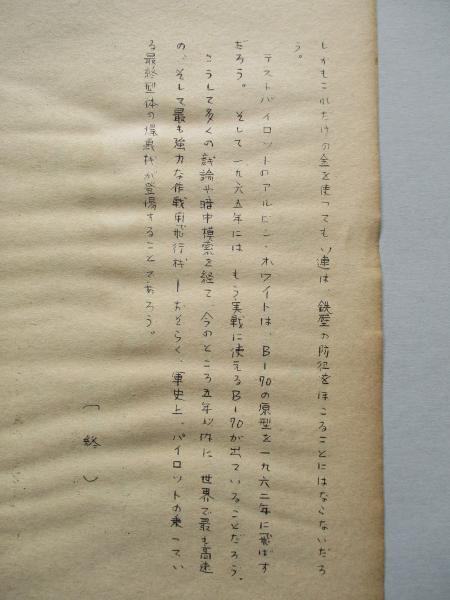 しかもこれだけの金を使ってもソ連は、鉄壁の防衛をほこることにはならないだろ
う。
テストパイロットのアルビン・ホワイトは、B-70の原型を一九六二年に飛ばす
だろう。そして一九六五年には もう実戦に使えるB-70が出ていることだろう。
こうして多くの試論や暗中模索を経て、今のところ五年以内に 世界で最も高速
の、そして最も強力な作戦用飛行機ーおそらく、軍史上、パイロットの乗ってい
る最終型体の爆撃機が登場することであろう。
(終)